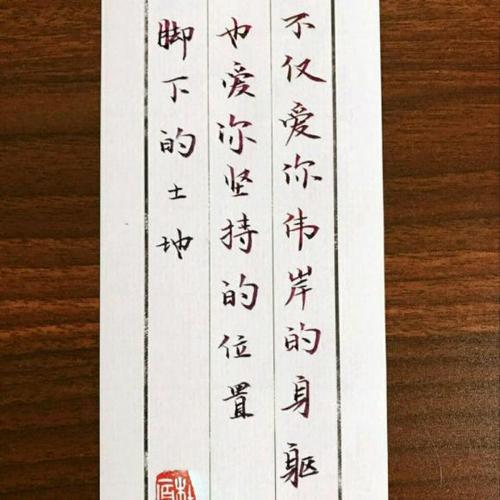 不仅爱你伟岸的身躯
也爱你坚持的位置
脚下的土地